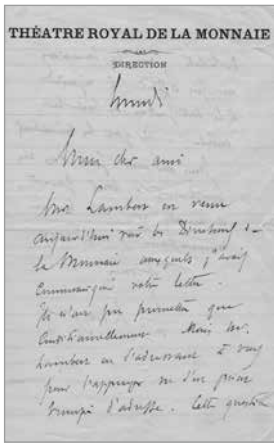 THÉATRE ROYAL DE LA MONNAIE
DIRECTION
Lundi
Mon cher ami
Mr Lambert est venu
aujourd'hui voir les Directeurs de
la Monnaie auxquels j'avais
communiqué votre lettre.
Ils n'ont pu promettre que
conditionnellement. Mais Mr.
Lambert en s'adressant à vous
pour l'appuyer
d'adresse. Cette question